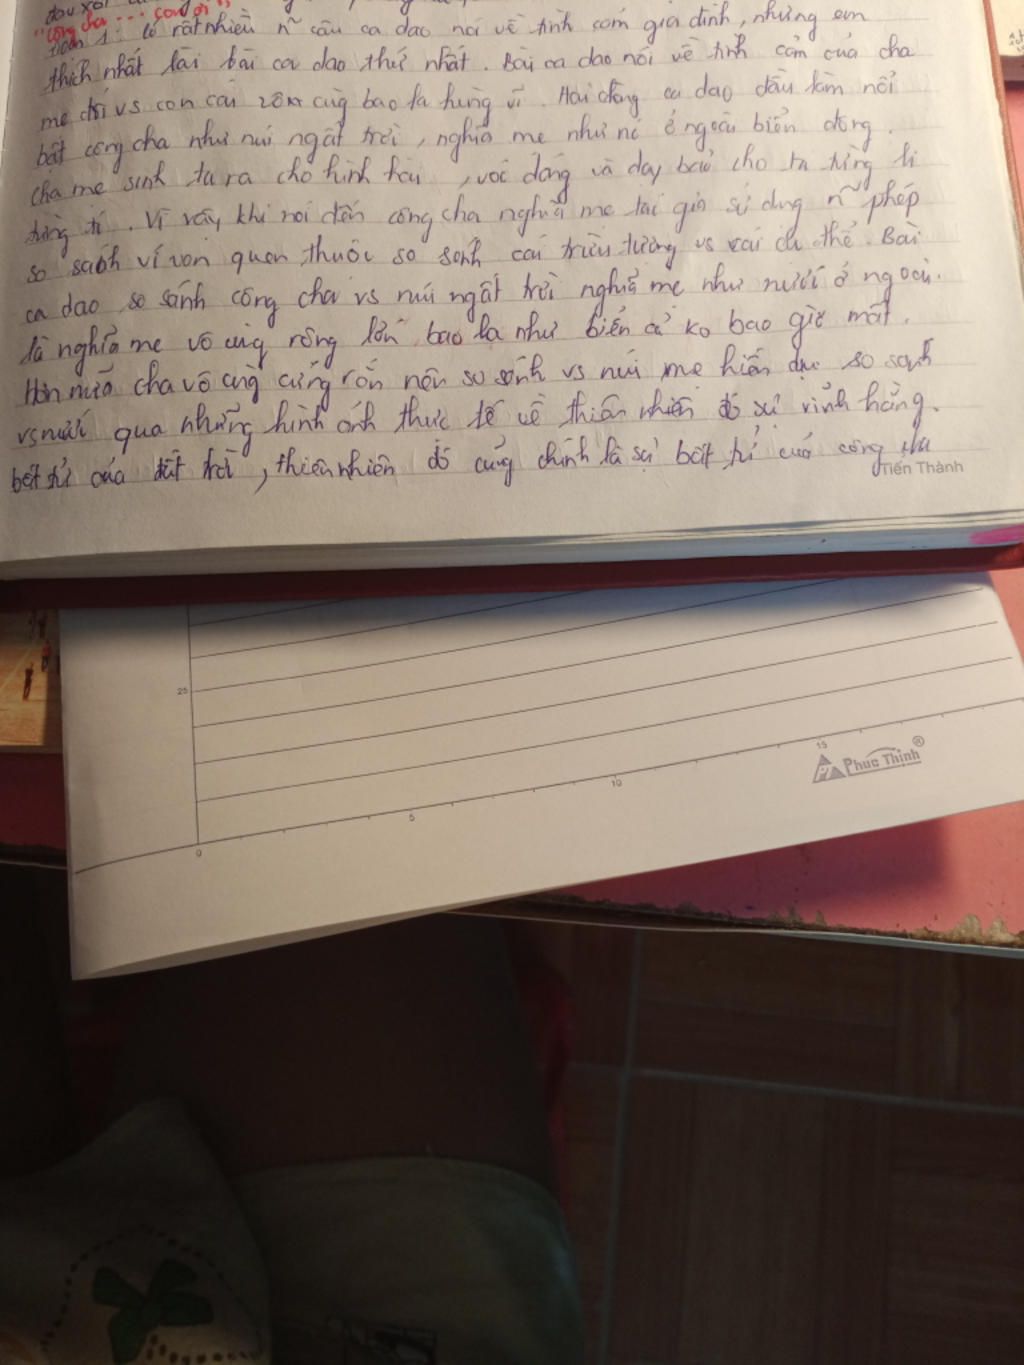 "Công cha ... con ơi"
Đoạn 1: Có rất nhiều n~ câu ca dao nói về tình cảm gia đình, nhưng em
thích nhất là bài ca dao thứ nhất. Bài ca dao nói về tình cảm của cha
mẹ đối vs con cái vô cùg bao la hùng vĩ. Hai dòng ca dao đầu làm nổi
bật công cha như núi ngất trời, nghĩa mẹ như nc ở ngoài biển đông.
cha mẹ sinh ta ra cho hình hài, vóc dáng và dạy bảo cho ta từng li
từng tí. Vì vậy khi nói đến công cha nghĩa mẹ tác giả sử dụng n~ phép
so sánh ví von quen thuộc so sánh cái trừu tượng vs cái cụ thể. Bài
ca dao so sánh công cha vs núi ngất trời nghĩa mẹ như nước ở ngoài.
là nghĩa mẹ vô cùg rộng lớn bao la như biển cả ko bao giờ mất.
Hơn nữa cha vô cùg cứng rắn nên so sánh vs núi mẹ hiền đc so sánh
vs nước qua những hình ảnh thực tế về thiên nhiên đó sự vĩnh hằng.
bất tử của đất trời, thiên nhiên đó cũng chính là sự bất tử của công cha
Tiến Thành
25
0
5
10
15
Phúc Thịnh ®